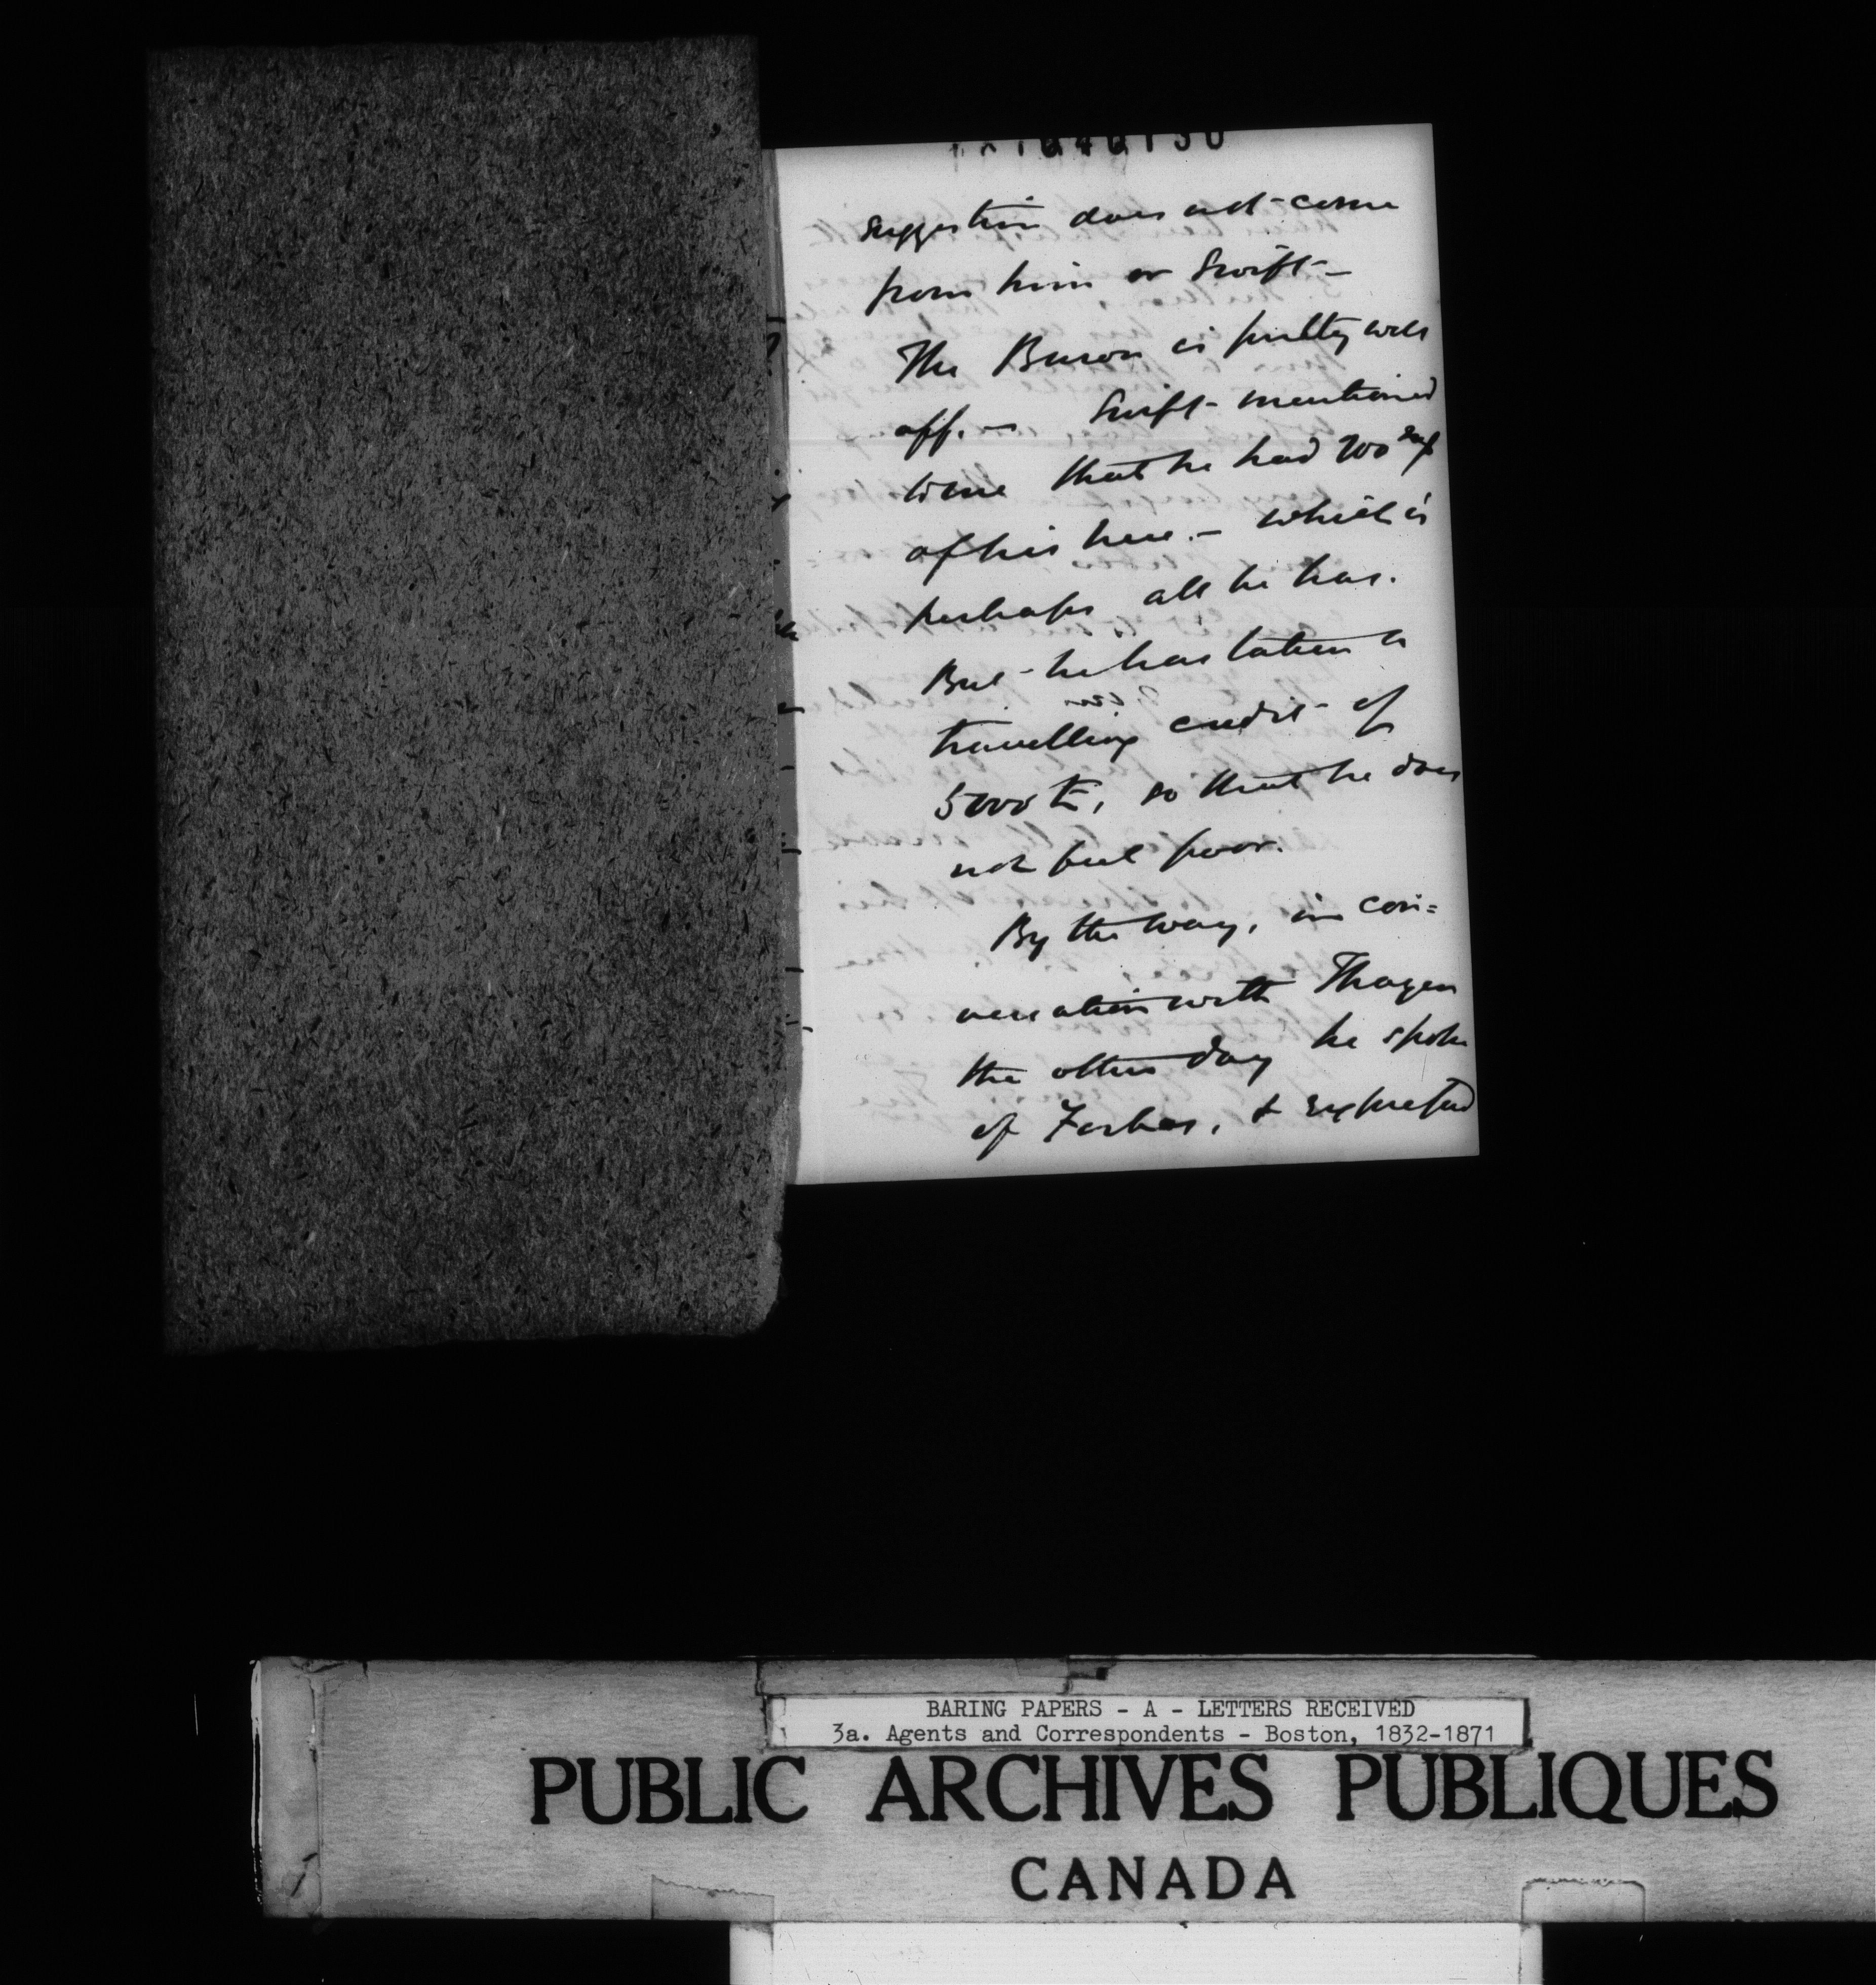 suggestion does not come
from him or Swift —
The Baron is pretty well
off. — Swift mentioned
to me that he had 200
of his here. — which is
perhaps all he has.
But he has taken a
travelling credit of
5000 £, so that he does
not feel poor.
By the way, in con=
versation with Thayer
the other day he spoke
of Forbes, & expressed
BARING PAPERS - A - LETTERS RECEIVED
3a. Agents and Correspondents - Boston, 1832-1871
PUBLIC ARCHIVES PUBLIQUES
CANADA